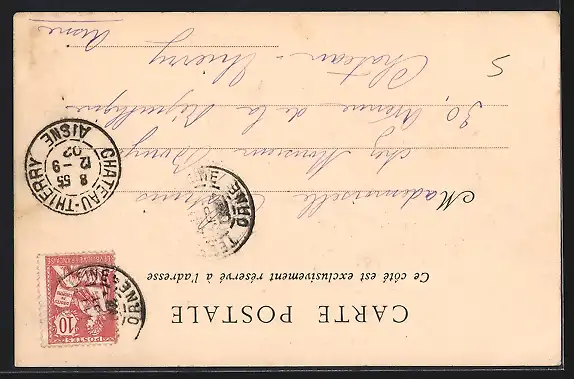 CARTE POSTALE
Ce côté est exclusivement réservé à l'adresse
Mademoiselle
chez Monsieur
30, Avenue de la République
Chateau-Thierry
Aisne
5
CHATEAU-THIERRY
8 55
12 -9
02
AISNE
ORNE
ORNE
10
POSTES
RÉPUBLIQUE FRANÇAISE